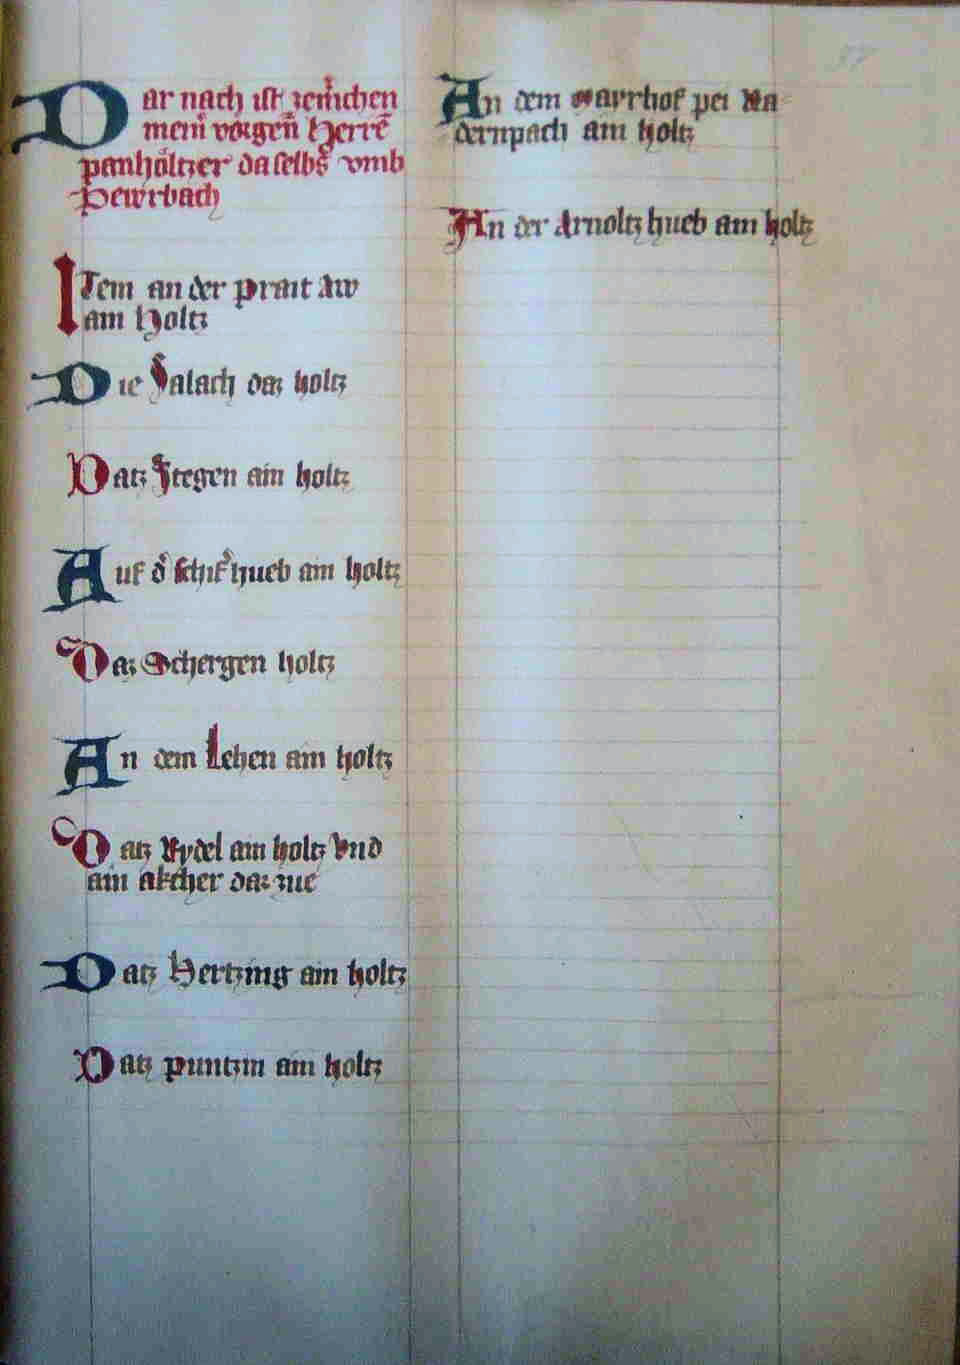 Dar nach ist zem̄chen
mein̄ vorgen̄ Herrē
panhöltzer daselbs vmb
Pewrbach
Item an der prait Aw
am Holtz
Die Salach daz holtz
Datz Stegen ain holtz
Auf d̓ schif̓hueb am holtz
Daz Schergen holtz
An dem Lehen ain holtz
Datz Rydel am holtz Vnd
ain akcher daz zue
Datz Hertzing ain holtz
Datz puntzin ain holtz
An dem Marrhof pei Na
dernpach am holtz
An der Arnoltz hueb am holtz